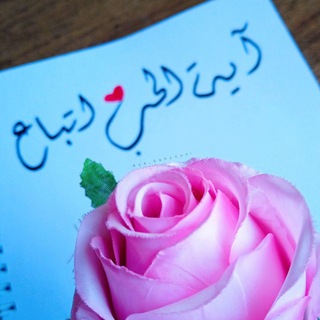 آية الحب اتباع